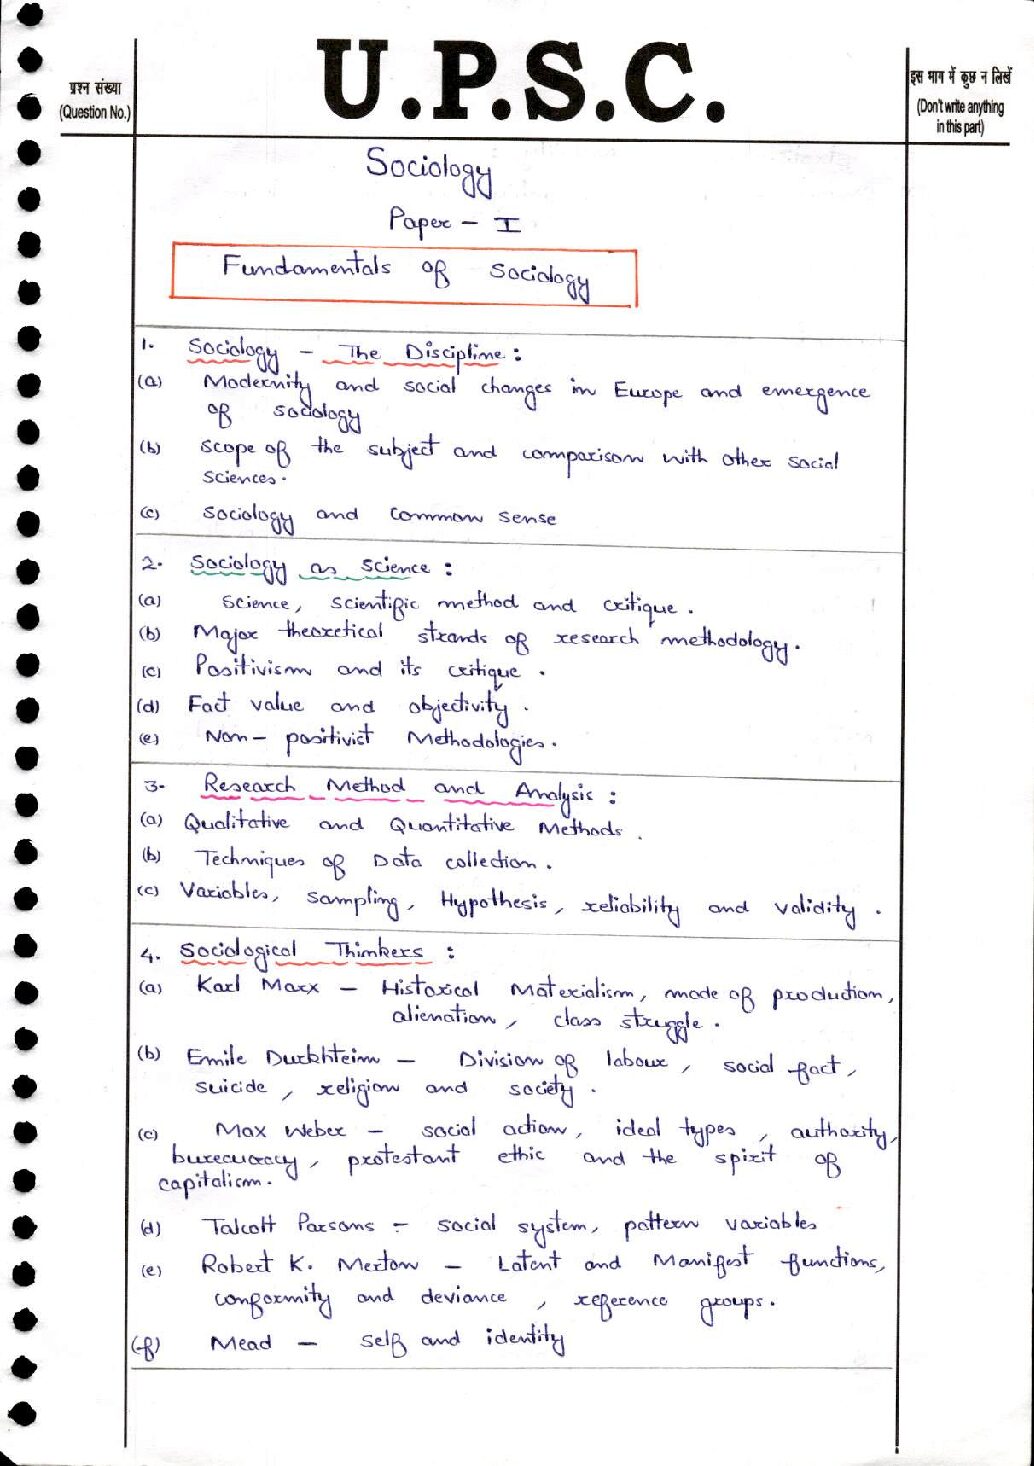 प्रश्न संख्या
(Question No.)
U.P.S.C.
इस भाग में कुछ न लिखें
(Don't write anything
in this part)
Sociology
Paper - I
Fundamentals of Sociology
1. Sociology - The Discipline :
(a) Modernity and social changes in Europe and emergence
of sociology
(b) Scope of the subject and comparison with other social
sciences.
(c) Sociology and common sense
2. Sociology as science :
(a) Science, scientific method and critique.
(b) Major theoretical strands of research methodology.
(c) Positivism and its critique.
(d) Fact value and objectivity.
(e) Non-positivist Methodologies.
3. Research Method and Analysis :
(a) Qualitative and Quantitative Methods.
(b) Techniques of Data collection.
(c) Variables, sampling, Hypothesis, reliability and validity.
4. Sociological Thinkers :
(a) Karl Marx - Historical Materialism, mode of production,
alienation, class struggle.
(b) Emile Durkhteim - Division of labour, social fact,
suicide, religion and society.
(c) Max Weber - social action, ideal types, authority,
burecucracy, protestant ethic and the spirit of
capitalism.
(d) Talcott Parsons - social system, pattern variables
(e) Robert K. Merton - Latent and Manifest functions,
conformity and deviance, reference groups.
(f) Mead - self and identity